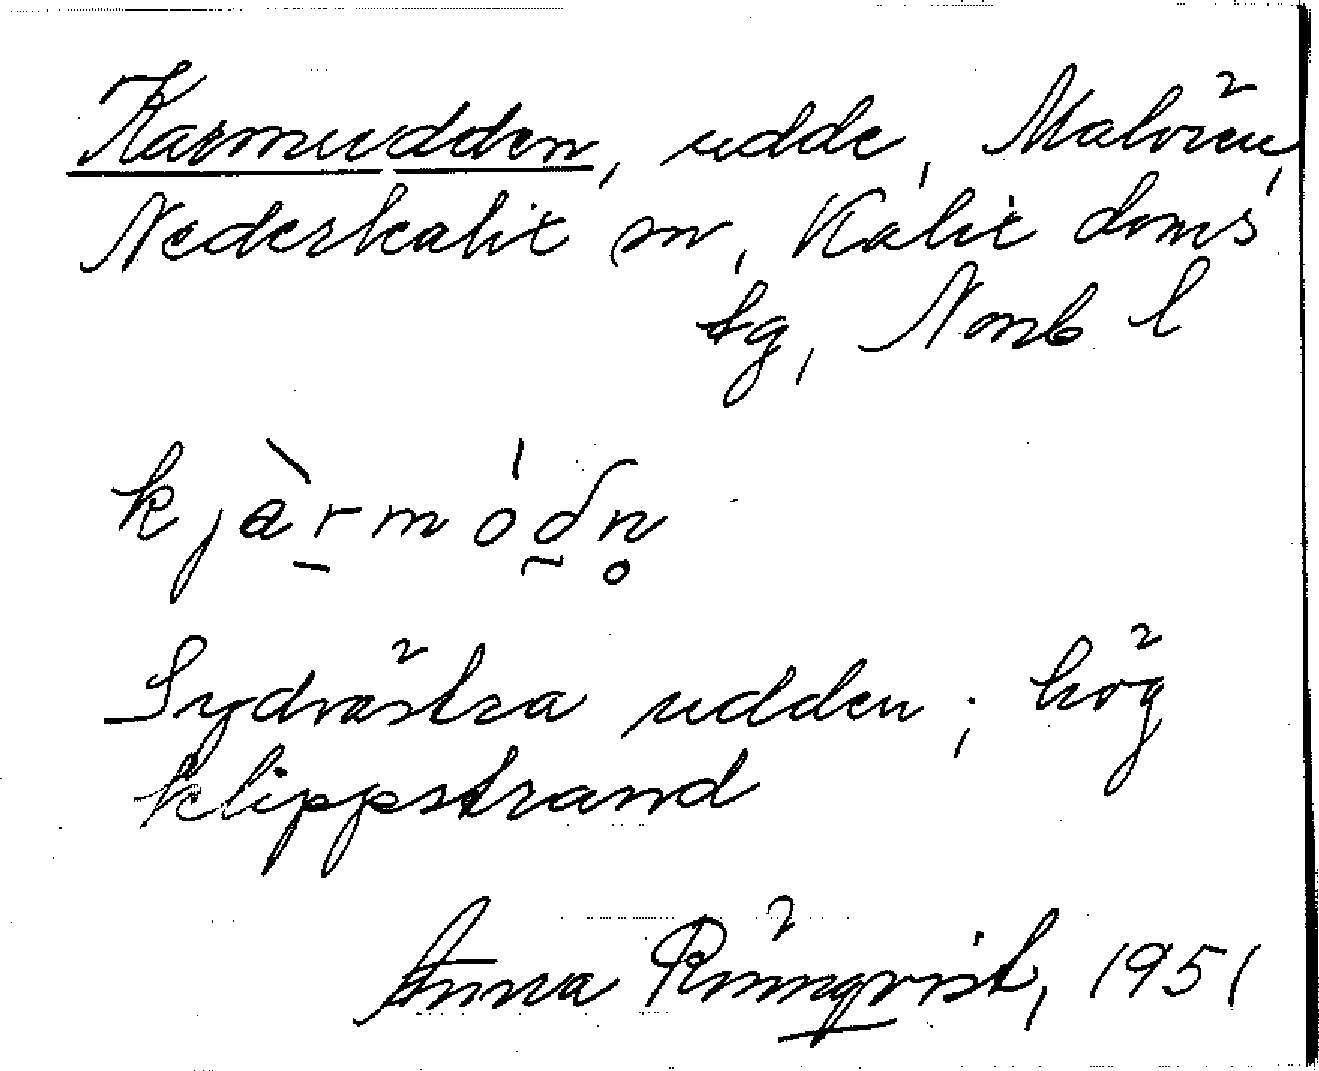 Karmudden, udde, Malören,
Nederkalix sn, Kalix doms
sg, Norrb l
kjàrmódn
Sydvästra udden; hög
klippstrand
Anna Rönnqvist, 1951